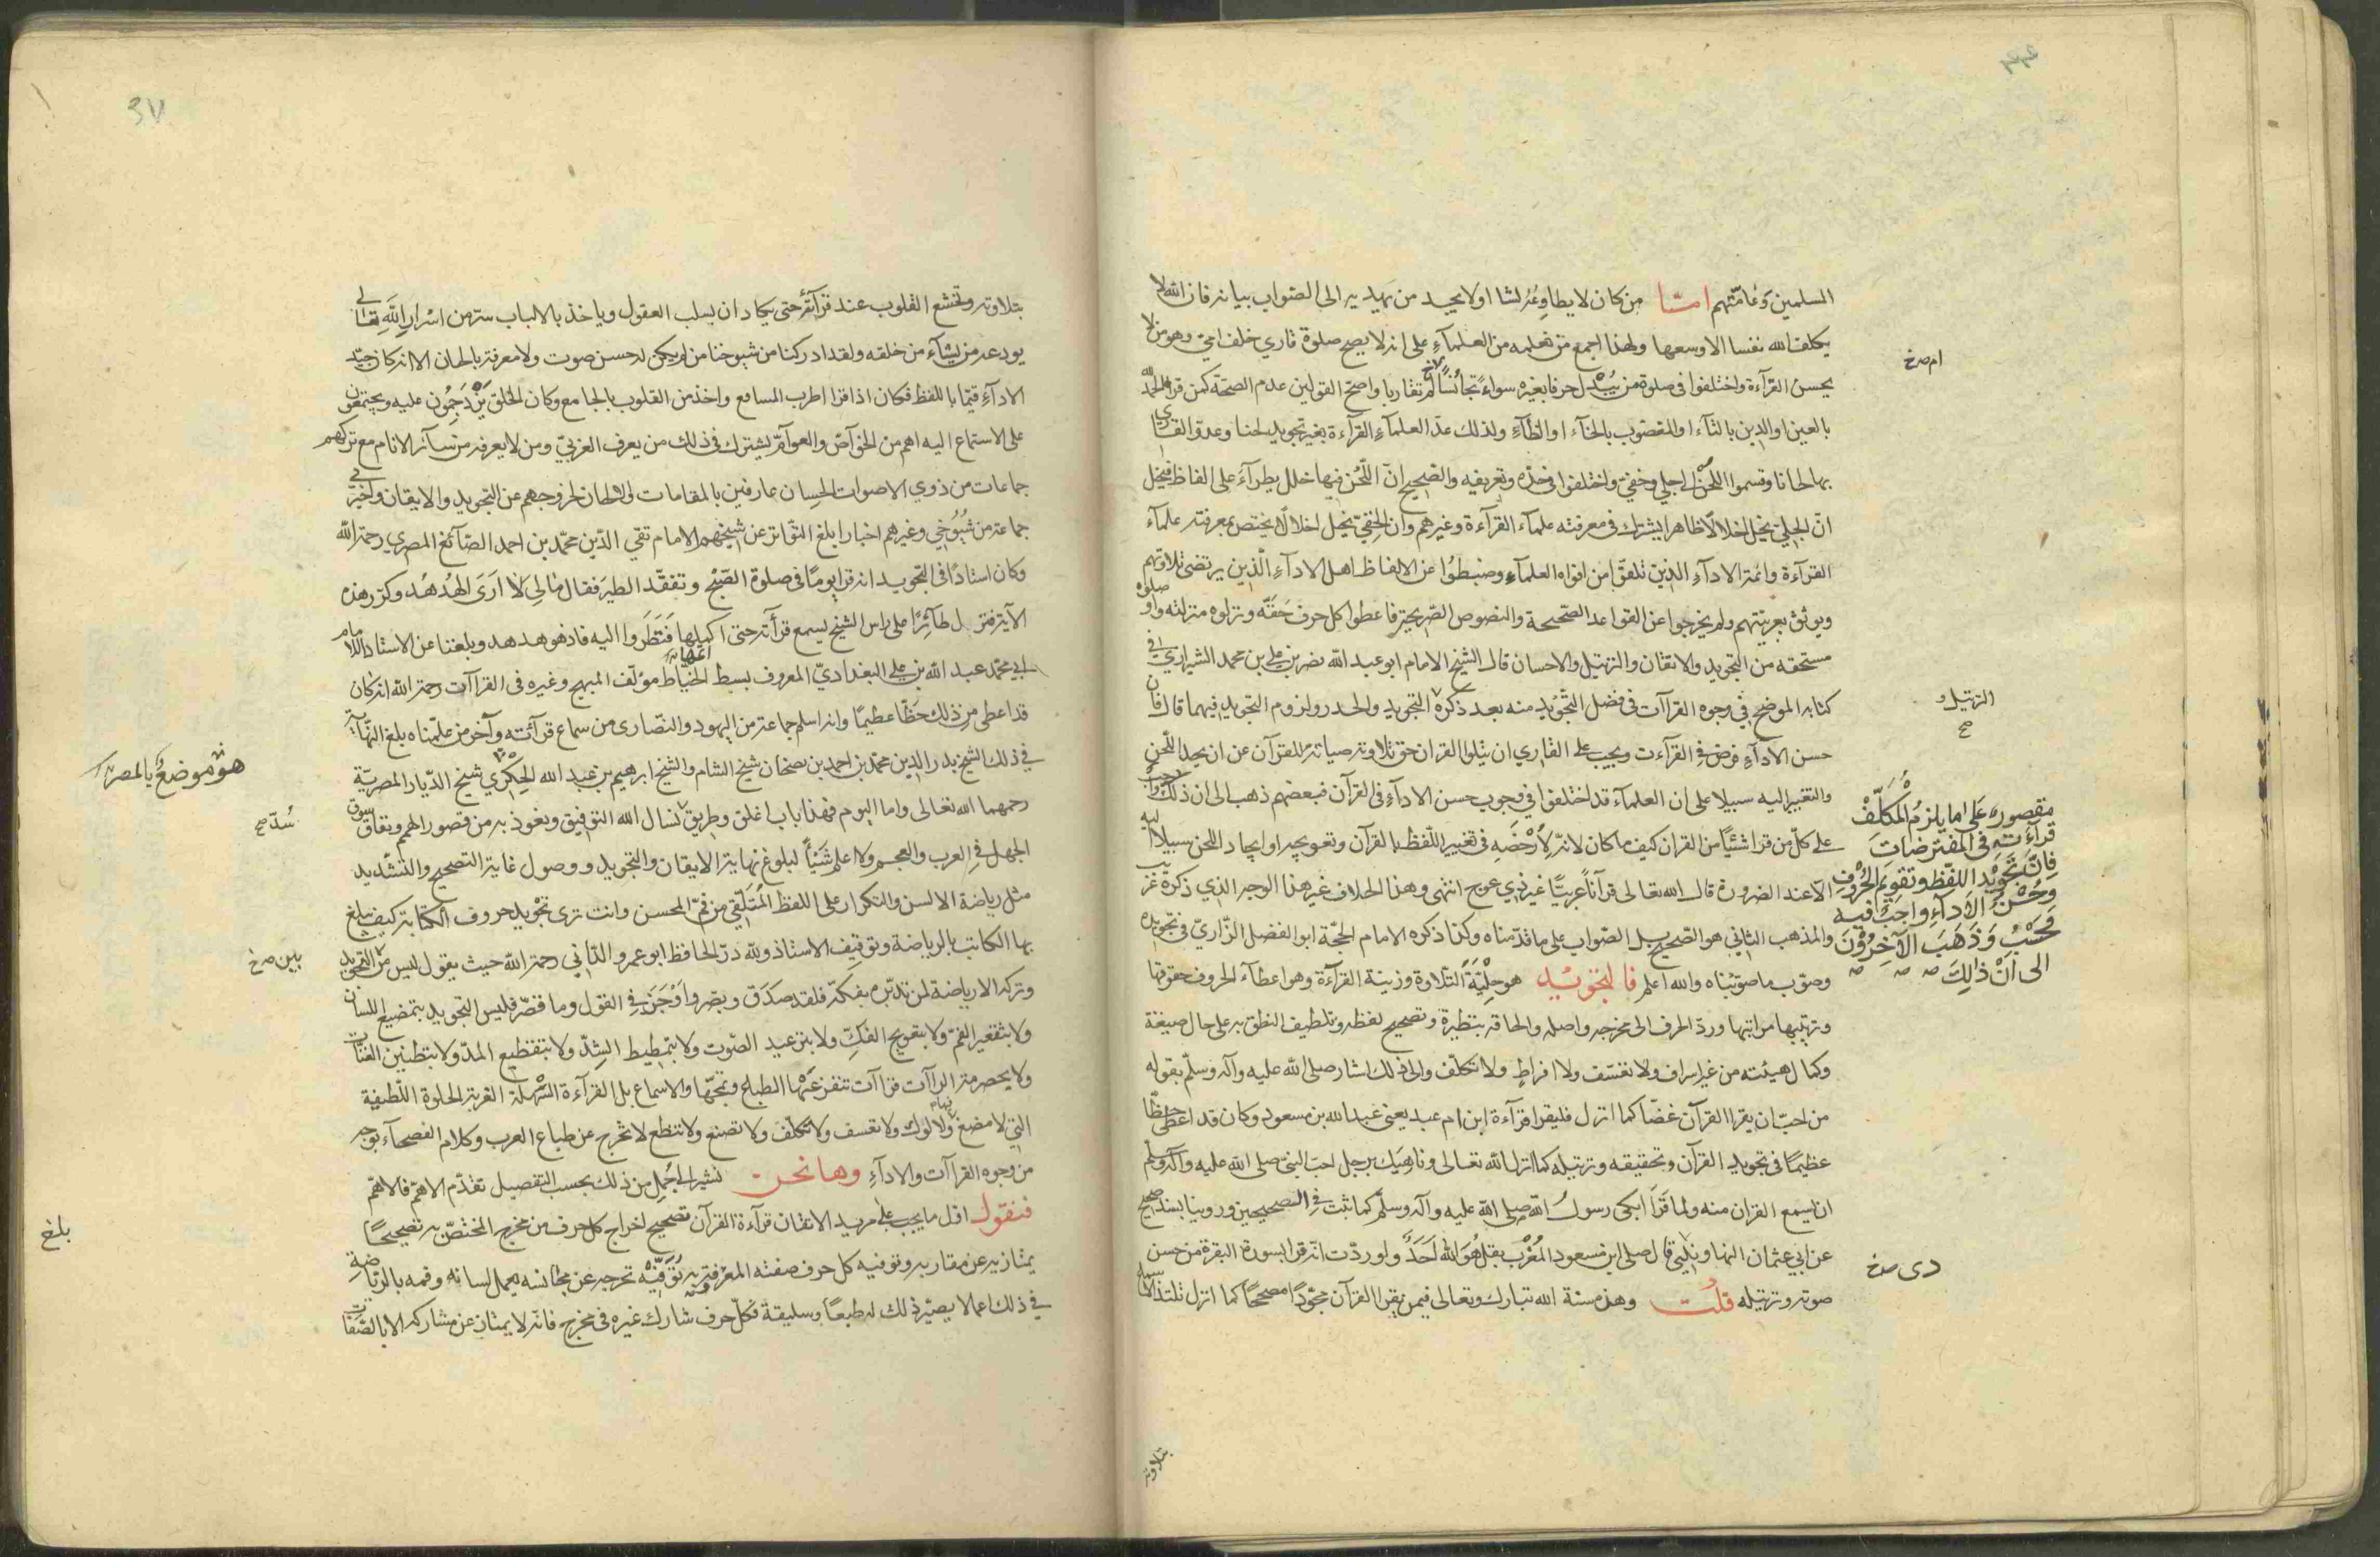 المسلمين وعامّتهم امّا من كان لا يطاوعه لسانا او لا يجد من يهديه الى الصّواب بيانه فان الله لا
يكلف الله نفسا الا وسعها ولهذا اجمع من نعلمه من العلمآء على انه لا يصح صلوة قاري خلف امّي وهو من لا
يحسن القرآءة واختلفوا في صلوة من يبدل حرفا بغيره سواء تجانسا ام تقاربا واصح القولين عدم الصحّة كمن قرا الحمد لله
بالعين او الدين بالتآء او المغضوب بالخآء او الظآء ولذلك عدّ العلمآء القرآءة بغير تجويد لحنا وعدّوا القاري
بها لحّانا وقسموا اللّحن الى جلي وخفيّ واختلفوا في حدّه وتعريفه والصّحيح انّ اللّحن فيها خلل يطرآء على الفاظ فيخل
انّ الجليّ يخل اخلالاً ظاهرا يشترك في معرفته علمآء القرآءة وغيرهم وان الخفيّ يخل اخلالاً يختص بمعرفته علمآء
القرآءة وائمة الادآء الذين تلقوا من افواه العلمآء وضبطوا عن الفاظ اهل الادآء الّذين يرتضى تلاوتهم
ويوثق بعربيتهم ولم يخرجوا عن القواعد الصّحيحة والنصوص الصّريحة فاعطوا كل حرف حَقّه ونزلوه منزلته واوصلوه
مستحقه من التجويد والاتقان والترتيل والاحسان قال الشيخ الامام ابو عبد الله نصر بن علي بن محمد الشيرازي في
كتابه الموضح في وجوه القراآت في فصل التّجْويد منه بعد ذكره التجويد والحدر ولزوم التجويد فيهما قال فان
حسن الادآء فرض في القرآءت ويجب على القاري ان يتلوا القران حق تلاوته صيانة للقرآن عن ان يجد اللّحن
والتغيير اليه سبيلا على ان العلمآء قد اختلفوا في وجوب حسن الادآء في القرآن فبعضهم ذهب الى ان ذلك واجب
على كلّ من قرا شئياً من القران كيف ما كان لانّه لا رُخْصَه في تغيير اللّفظ بالقرآن وتعويجه او ايجاد اللحن سبيلاً اليه
الّا عند الضرورة قال الله تعالى قرآناً عربيًّا غير ذي عوج انتهى وهذا الخلاف غير هذا الوجه الذي ذكره غريب
والمذهب الثاني هو الصّحيح بل الصّواب على ما قدّمناه وكذا ذكره الامام الحجّة ابو الفضل الرّازيّ في تجويده
وصوّب ما صوّبناه والله اعلم فالتجويد هو حِلْيَة التّلاوة وزينة القرآءة وهو اعطآء الحروف حقوقها
وترتيبها مراتبها وردّ الحرف الى مخرجه واصله والحاقه بنظيره وتصحيح لفظه وتلطيف النطق به على حال صيغته
وكمال هيئته من غير اسراف ولا تعسّف ولا افراطٍ ولا تكلّف والى ذلك اشار صلى الله عليه وآله وسلّم بقوله
من احبّ ان يقرا القرآن غضًّا كما انزل فليقرا قرآءة ابن ام عبد يعني عبد الله بن مسعود وكان قد اعطي حظًّا
عظيمًا في تجويد القرآن وتحقيقه وترتيله كما انزله الله تعالى وناهيك برجل احبّ النبيّ صلى الله عليه وآله وسلّم
ان يسمع القران منه ولما قَرَأ ابكى رسول الله صلى الله عليه وآله وسلّم كما ثبت في الصحيحين وروينا بسند صحيح
عن ابي عثمان النهاوندي قال صلى ابن مسعود المُغْرِب بقل هُوَ الله اَحَدٌ ولوردّت انّه قرا بسورة البقرة من حسن
صوته وترتيله قلت وهذه سنّة الله تبارك وتعالى فيمن يقرا القرآن مجوّدًا مصحّحًا كما انزل تلتذّ الاسماع
ام صح
الترتيل و
صح
مقصوره على ما يلزم المكلّف
قرآءته في المفترضات
فانّ تجويد اللفظ وتقويم الحروف
وحسن الادآء واجب فيه
فحسب وذهب الآخرون
الى ان ذالك
دى صح
بتلاوته
37
بتلاوته وتخشع القلوب عند قرآته حتى يكاد ان يسلب العقول وياخذ بالالباب سرّ من اسْرارِ اللهِ تعالى
يودعه من يشآء من خلقه ولقد ادركنا من شيوخنا من لم يكن له حسن صوت ولا معرفة بالحان الا انه كان جيّد
الادآء قيّما باللفظ فكان اذا قرا اطرب المسامع واخذ من القلوب بالجامع وكان الخلق يَزْدَحِمُون عليه ويجتمعون
على الاستماع اليه امم من الخوآصّ والعوآمّ يشترك في ذلك من يعرف العربيّ ومن لا يعرفه من سآئر الانام مع تركهم
جماعات من ذوي الاصوات الحِسان عارفين بالمقامات والالحان لخروجهم عن التجويد والايقان واخبرني
جماعة من شُيُوخي وغيرهم اخبارا بلغ التّواتر عن شيخهم الامام تقي الدّين محمّد بن احمد الصّآئغ المصري رحمه الله
وكان استاذًا في التجويد انه قرا يومًا في صلوة الصّبْح وتفقّد الطير فقال مٰالِيَ لَا اَرَى الهُدْهُد وكرّر هذه
الآية فنزل طآئِرًا على راس الشيخ يسمع قرأته حتى اكملها فنَظَروا اليه فاذ هو هدهد وبلغنا عن الاستاد الامام
ابي محمّد عبد الله بن علي البغداديّ المعروف بسبط الخيّاط مؤلف المبهج وغيره في القراآت رحمه الله انه كان
قد اعطى من ذلك حَظّا عظيمًا وانه اسلم جماعة من اليهود والنّصارى من سماع قرآئته وآخر من علّمناه بلغ النّهآية
في ذلك الشيخ بدر الدين محمّد بن احمد بن بصخان شيخ الشام والشيخ ابرهيم بن عبد الله الحِكْرِي شيخ الدّيار المصريّة
رحمهما الله تعالى واما اليوم فهذا باب اغلق وطريق سد نسال الله التوفيق ونعوذ به من قصور الهمم ونفاق سوق
الجهل في العرب والعجم ولا اعلم شَيْئاً لبلوغ نهاية الايقان والتجويد ووصول غاية التصحيح والتشديد
مثل رياضة الالسن والتكرار على اللفظ المُتَلَقّي من فم المحسن وانت ترى تجْويد حروف الكتابة كيف يبلغ
بها الكاتب بالرياضة وتوقيف الاستاذ ولله درّ الحافظ ابو عمرو الدّاني رحمه الله حيث يقول ليس من التجويد
وتركه الا رياضة لمن تدبّره بفكّه فلقد صدَق وبصّر واَوْجَزَ في القول وما قصّر فليس التجويد بتمضيع اللسان
ولا بتقعير الفمّ ولا بتعويج الفكّ ولا بترعيد الصّوت ولا بتمطيط الشدّ ولا بتقطيع المدّ ولا بتطنين الغنّات
ولا بحصرمة الرآآت قرآات تنفر عَنْها الطباع وتمجّها والاسماع بل القرآءة السّهلة العذبة الحلوة اللّطيفة
التي لا مضغ ولا لوك ولا تعسف ولا تكلّف ولا تصنع ولا تنطع لا تخرج عن طباع العرب وكلام الفصحآء بوجه
من وجوه القراآت والادآء وها نحن نشير الى جُملٍ من ذلك بحسب التفصيل تقدّم الاهمّ فالاهمّ
فنقول اوّل ما يجب على مريد الاتقان قرآءة القرآن تصحيح اخراج كل حرف من مخرجه المختصّ به تصحيحًا
يمتاز به عن مقاربه وتوفيه كل حرف صفته المعرْفة به تُوَفيهْ تخرجه عن مجٰانسه يعمل لسانه وفمه بالرّياضة
في ذلك اعمالا يصيّر ذلك له طبعًا وسليقة فكلّ حرف شارك غيره في مخرجه فانّه لا يمتاز عن مشاركه الا بالصّفات
هو موضع بالمصر
سُدّ صح
بين صح
بلغ